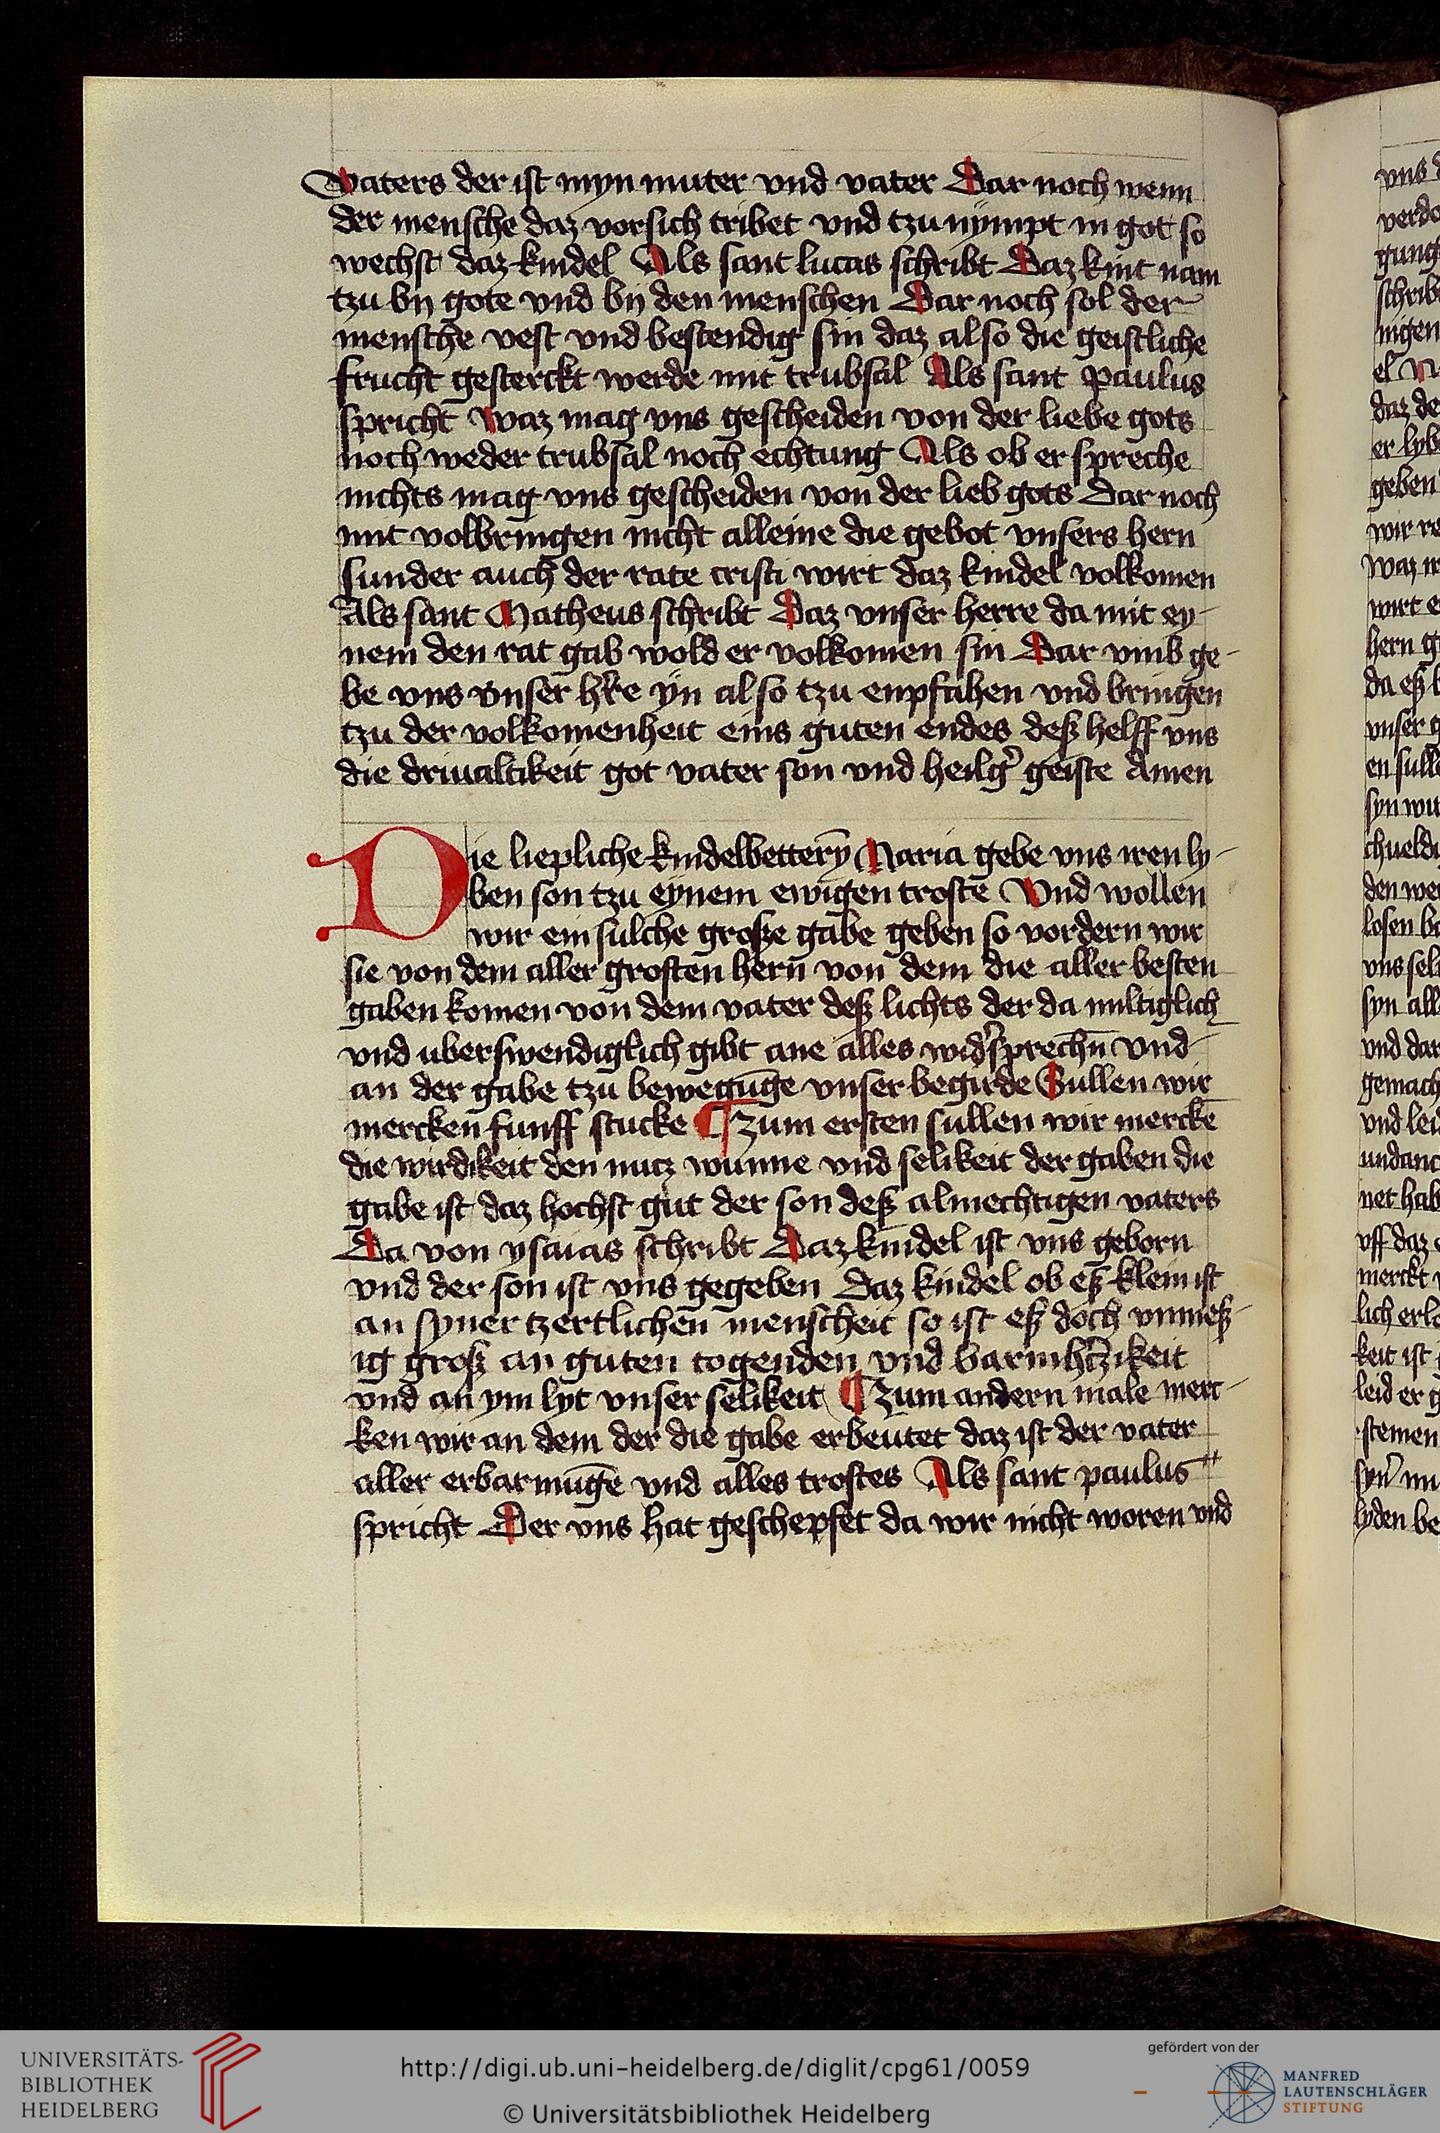 Vaters der ist myn muter vnd vater Dar noch wenn
der mensche daz vorsich tribet vnd tzu nympt in got so
wechst daz kindel Als sant lucas schribt Daz kint nam
tzu by gote vnd by den menschen Dar noch sol der
mensche vest vnd bestendig sin daz also die geistliche
frucht gesterckt werde mit trubsal Als sant paulus
spricht waz mag vns gescheiden von der liebe gots
noch weder trubsal noch echtung Als ob er spreche
nichts mag vns gescheiden von der lieb gots Dar noch
mit volbringen nicht alleine die gebot vnsers hern
sunder auch der rate cristi wirt daz kindel volkomen
Als sant Matheus schribt Daz vnser herre da mit ey-
nem den rat gab wold er volkomen sin Dar vmb ge-
be vns vnser hre yn also tzu enpfahen vnd bringen
tzu der volkomenheit eins guten endes deß helff vns
die driualtikeit got vater son vnd heilg geiste Amen
Die liepliche kindelbettery̅ Maria gebe vns iren ly-
ben son tzu eynem ewigen troste Vnd wollen
wir ein sulche grosze gabe geben so vordern wir
sie von dem aller grosten hern von dem die aller besten
gaben komen von dem vater deß lichts der da miltiglich
vnd uberswendiglich gibt ane alles widsprechn̅ vnd
an der gabe tzu bewegu̅ge vnser begirde Sullen wir
mercken funff stucke ¶ Zum ersten sullen wir mercke̅
die wirdikeit den nutz wunne vnd selikeit der gaben die
gabe ist daz hochst gut der son deß almechtigen vaters
Da von ysaias schribt Daz kindel ist vns geborn
vnd der son ist vns gegeben Daz kindel ob eß klein ist
an syner tzertlichen menscheit so ist eß doch vnmeß-
ig groß an guten togenden vnd barmhtzikeit
vnd an ym lyt vnser selikeit ¶ Zum andern male merc-
ken wir an dem der die gabe erbeutet daz ist der vater
aller erbarmu̅ge vnd alles trostes Als sant paulus
spricht Der vns hat geschepfet da wir nicht woren vnd
vns
verdo
gung
schrib
nigen
daz de
er lyb
geben
wir re
waz
wirt e
hern g
da eß
vnser g
en sull
syn
den wer
losen be
vns sel
syn all
vnd dar
gemach
vnd lei
undanc
net hab
vff daz
merckt
lich erl
keit ist
leid er g
stemen
syn
lyden be
UNIVERSITÄTS-
BIBLIOTHEK
HEIDELBERG
http://digi.ub.uni-heidelberg.de/diglit/cpg61/0059
© Universitätsbibliothek Heidelberg
gefördert von der
MANFRED
LAUTENSCHLÄGER
STIFTUNG